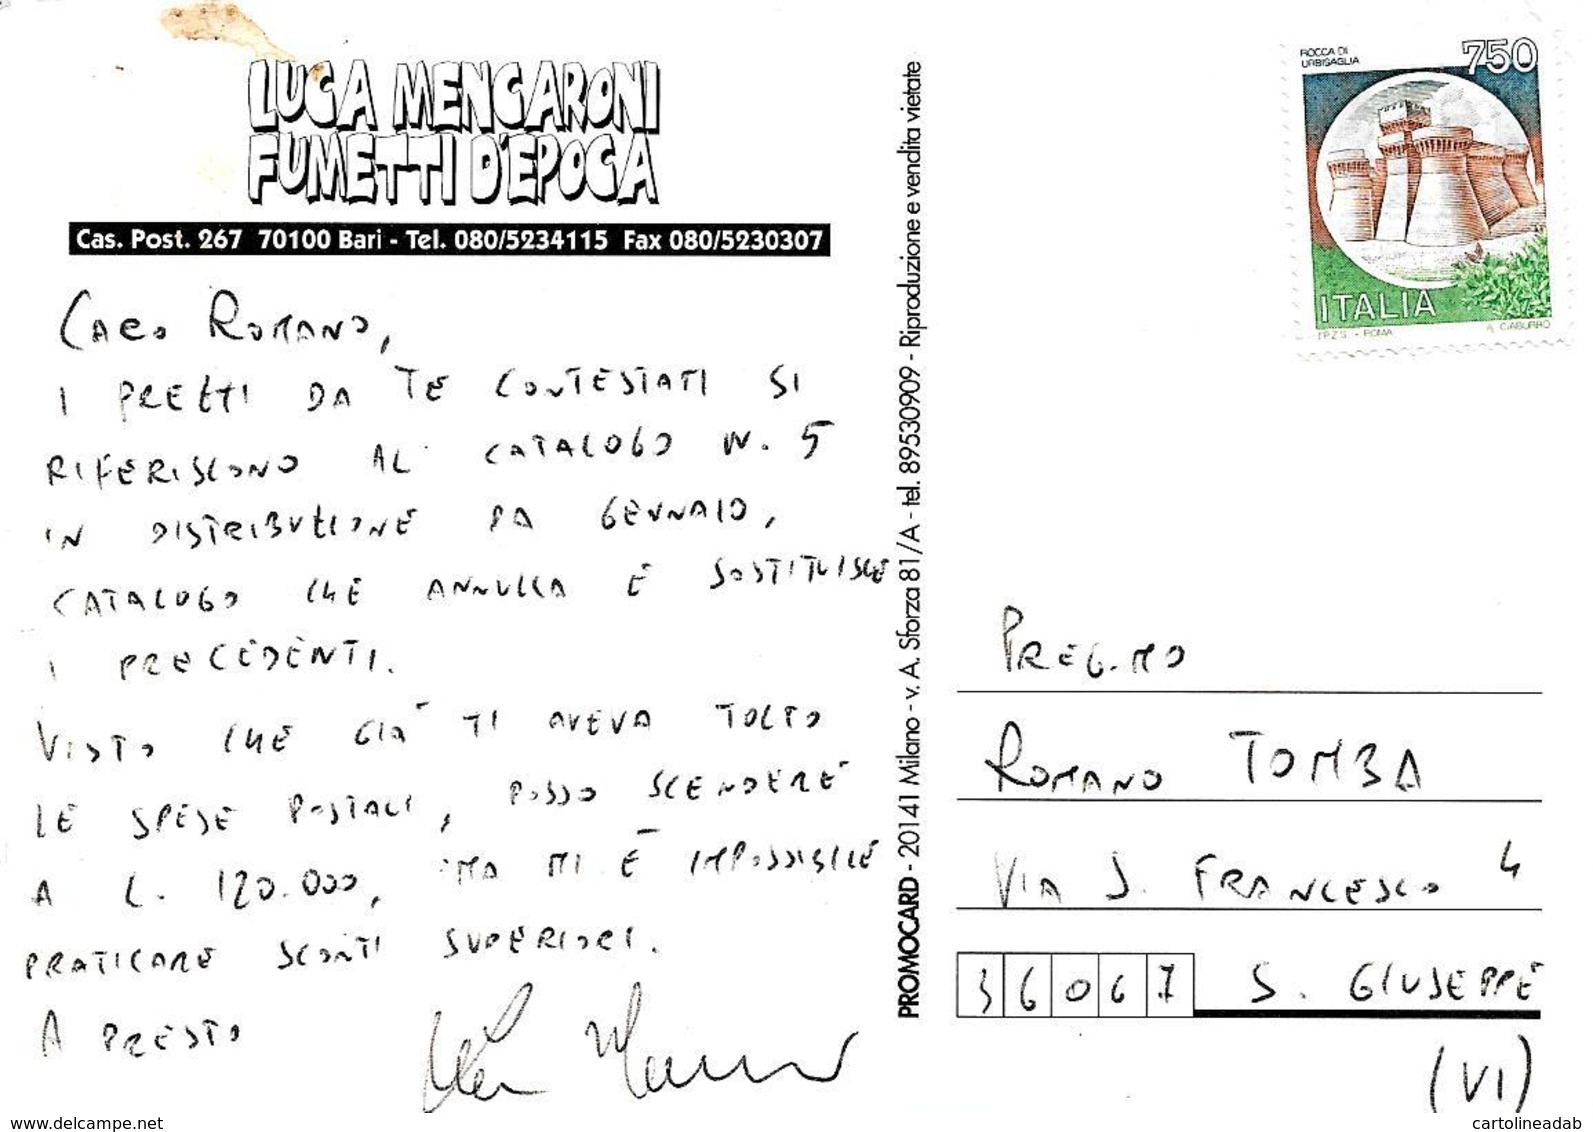 LUCA MENCARONI
FUMETTI D'EPOCA
Cas. Post. 267 70100 Bari - Tel. 080/5234115 Fax 080/5230307
CARO ROMANO,
I PREZZI DA TE CONTESTATI SI
RIFERISCONO AL CATALOGO N. 5
IN DISTRIBUZIONE DA GENNAIO,
CATALOGO CHE ANNULLA E SOSTITUISCE
I PRECEDENTI.
VISTO CHE GIÀ TI AVEVA TOLTO
LE SPESE POSTALI, POSSO SCENDERE
A L. 120.000, MA MI È IMPOSSIBILE
PRATICARE SCONTI SUPERIORI.
A PRESTO
PROMOCARD - 20141 Milano - v. A. Sforza 81/A - tel. 89530909 - Riproduzione e vendita vietate
ROCCA DI
URBISAGLIA
750
ITALIA
I.P.Z.S. - ROMA A. CIABURRO
PREG.MO
ROMANO TOMBA
VIA S. FRANCESCO 4
36067 S. GIUSEPPE
(VI)
www.delcampe.net
cartolineadab